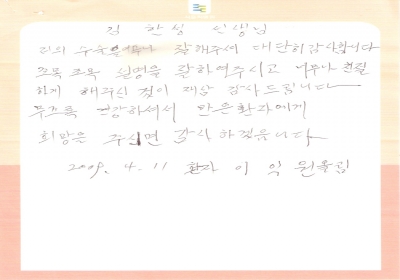 김 한성 선생님
저의 수술을 잘 해주셔서 대단히 감사합니다
조목 조목 설명을 잘하여주시고 너무나 친절
하게 해주신 것이 재삼 감사드립니다
무조록 건강하셔서 많은환자에게
희망을 주시면 감사하겠읍니다
2009. 4. 11 환자 이 익 원올림